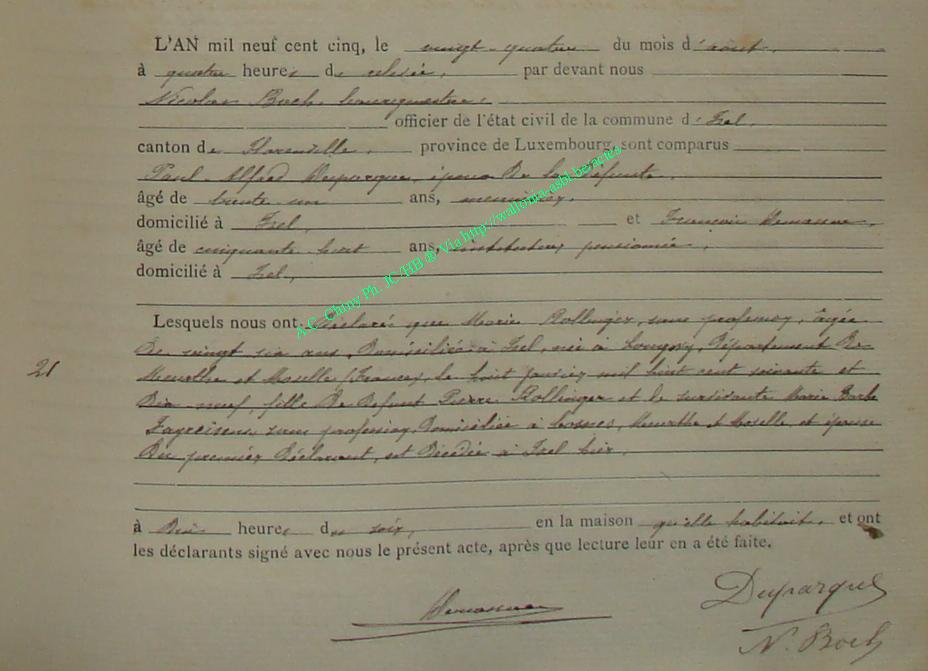 L'AN mil neuf cent cinq, le vingt-quatre du mois d'août.
à quatre heures de relevée, par devant nous
Nicolas Boch, bourgmestre,
officier de l'état civil de la commune d'Izel,
canton de Florenville, province de Luxembourg, sont comparus
Paul-Alfred Duparque, époux De la Défunte,
âgé de trente un ans, menuisier,
domicilié à Izel, et François
âgé de cinquante huit ans, instituteur pensionné,
domicilié à Izel,
A.C. Chiny Ph. JC/HB @ Via http://wallonia-asbl.be/actes
Lesquels nous ont Déclaré que Marie Rollinger, sans profession, âgée
De vingt six ans, Domiciliée à Izel, née à Longwy, Département De
21
Meurthe et Moselle (France), le huit janvier mil huit cent soixante et
Dix-neuf, fille De Defunt Pierre Rollinger et de survivante Marie Barbe
sans profession, Domiciliée à Cosnes, Meurthe et Moselle et épouse
Du premier Déclarant, est Décédée à Izel hier,
à heures du soir, en la maison qu'elle habitait, et ont
les déclarants signé avec nous le présent acte, après que lecture leur en a été faite.
Duparque
N. Boch